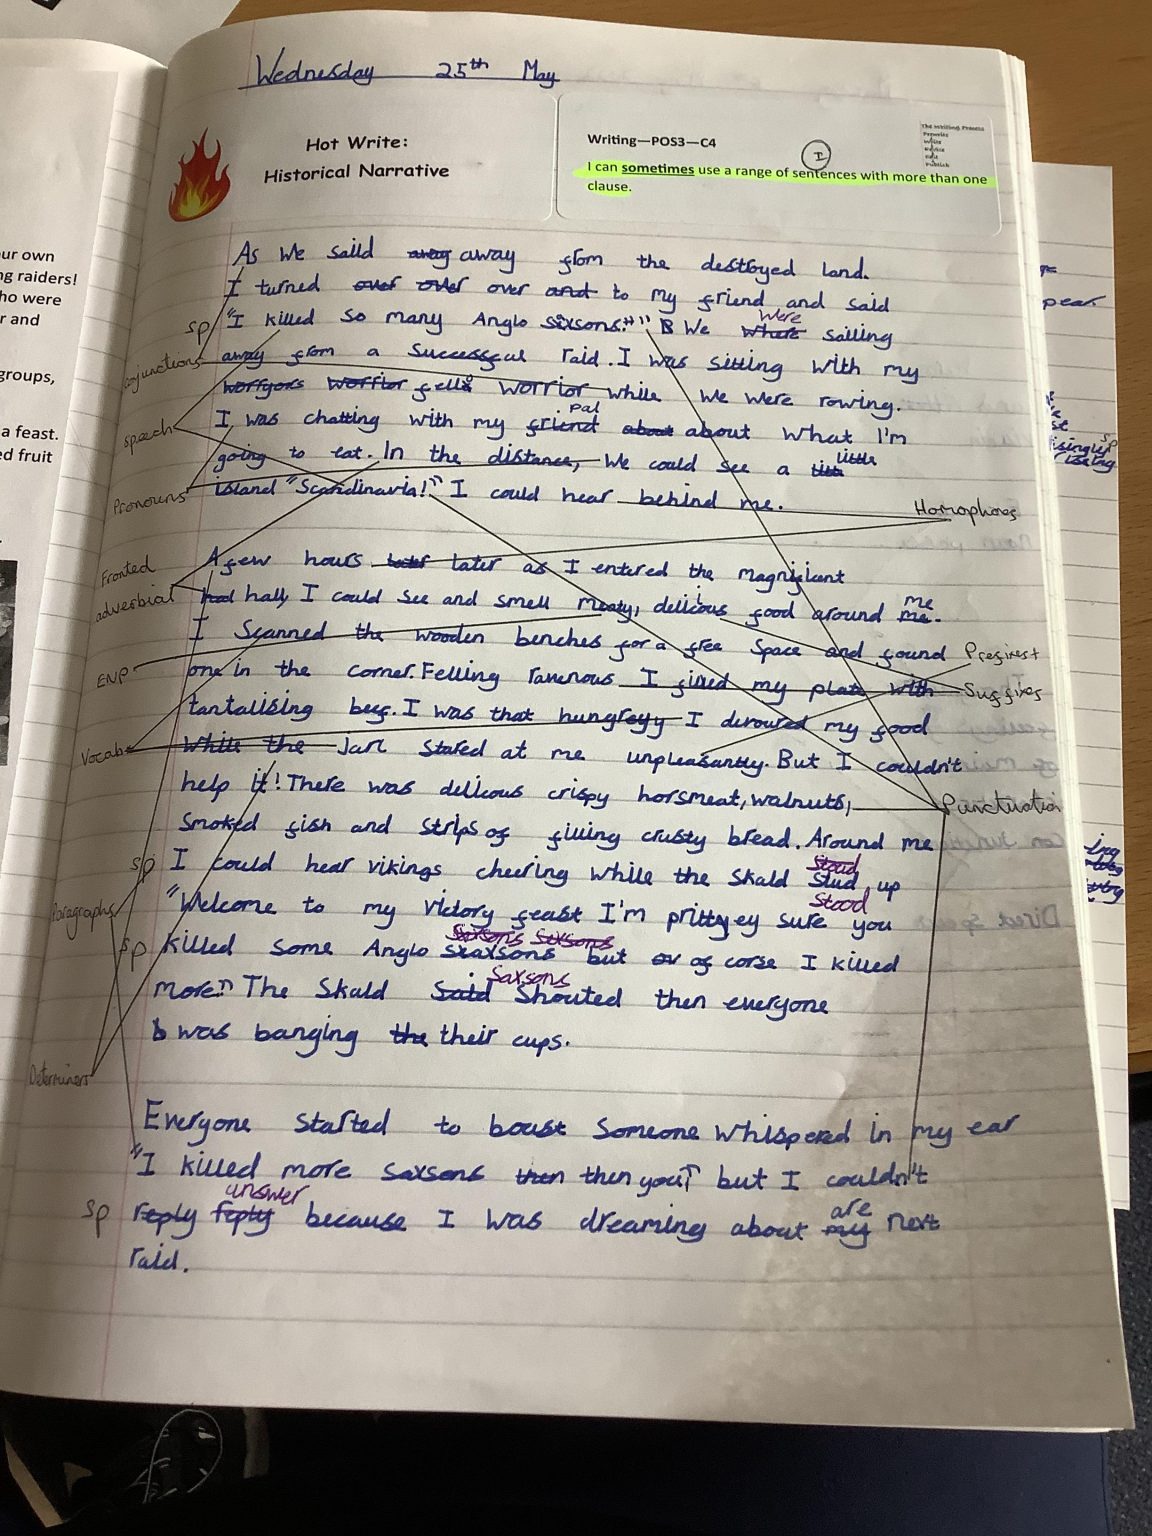 Wednesday 25th May
Hot Write:
Historical Narrative
Writing—POS3—C4
I
I can sometimes use a range of sentences with more than one
clause.
The Writing Process
Prewrite
Write
Revise
Edit
Publish
our own
ng raiders!
ho were
r and
groups,
a feast.
ed fruit
As we saild away away from the destroyed land.
I turned over over over and to my friend and said
sp "I killed so many Anglo sixsons!" B We where were sailing
conjunctions away from a successful raid. I was sitting with my
worryors worrior fella worrior while we were rowing.
speech I was chatting with my friend pal about about what I'm
going to eat. In the distance, we could see a little
Pronouns island "Scandinavia!" I could hear behind me.
Homophones
Fronted adverbial
A few hours later later as I entered the magnificent
hall, I could see and smell meaty, delicous food around me. me
I scanned the wooden benches for a free space and found
Prefixest
ENP one in the corner. Felling ravenous I filled my plate with
Suffixes
tantalising beef. I was that hungreyy I devoured my food
Vocab while the Jarl stared at me unpleasantly. But I couldn't
help it! There was delicous crispy horsmeat, walnuts,
Punctuation
smoked fish and strips of filling crusty bread. Around me
sp I could hear vikings cheering while the skald stud up
stoud
stood
Paragraphs "Welcome to my victory feast I'm prittyey sure you
sp killed some Anglo sxaxsons but ov of corse I killed
Sixsons Sixsons
Saxsons
more!" The Skald said shouted then everyone
b was banging the their cups.
Determiners
Everyone started to boust someone whispered in my ear
"I killed more saxsons then then you!" but I couldn't
sp reply reply answer because I was dreaming about my are next
raid.